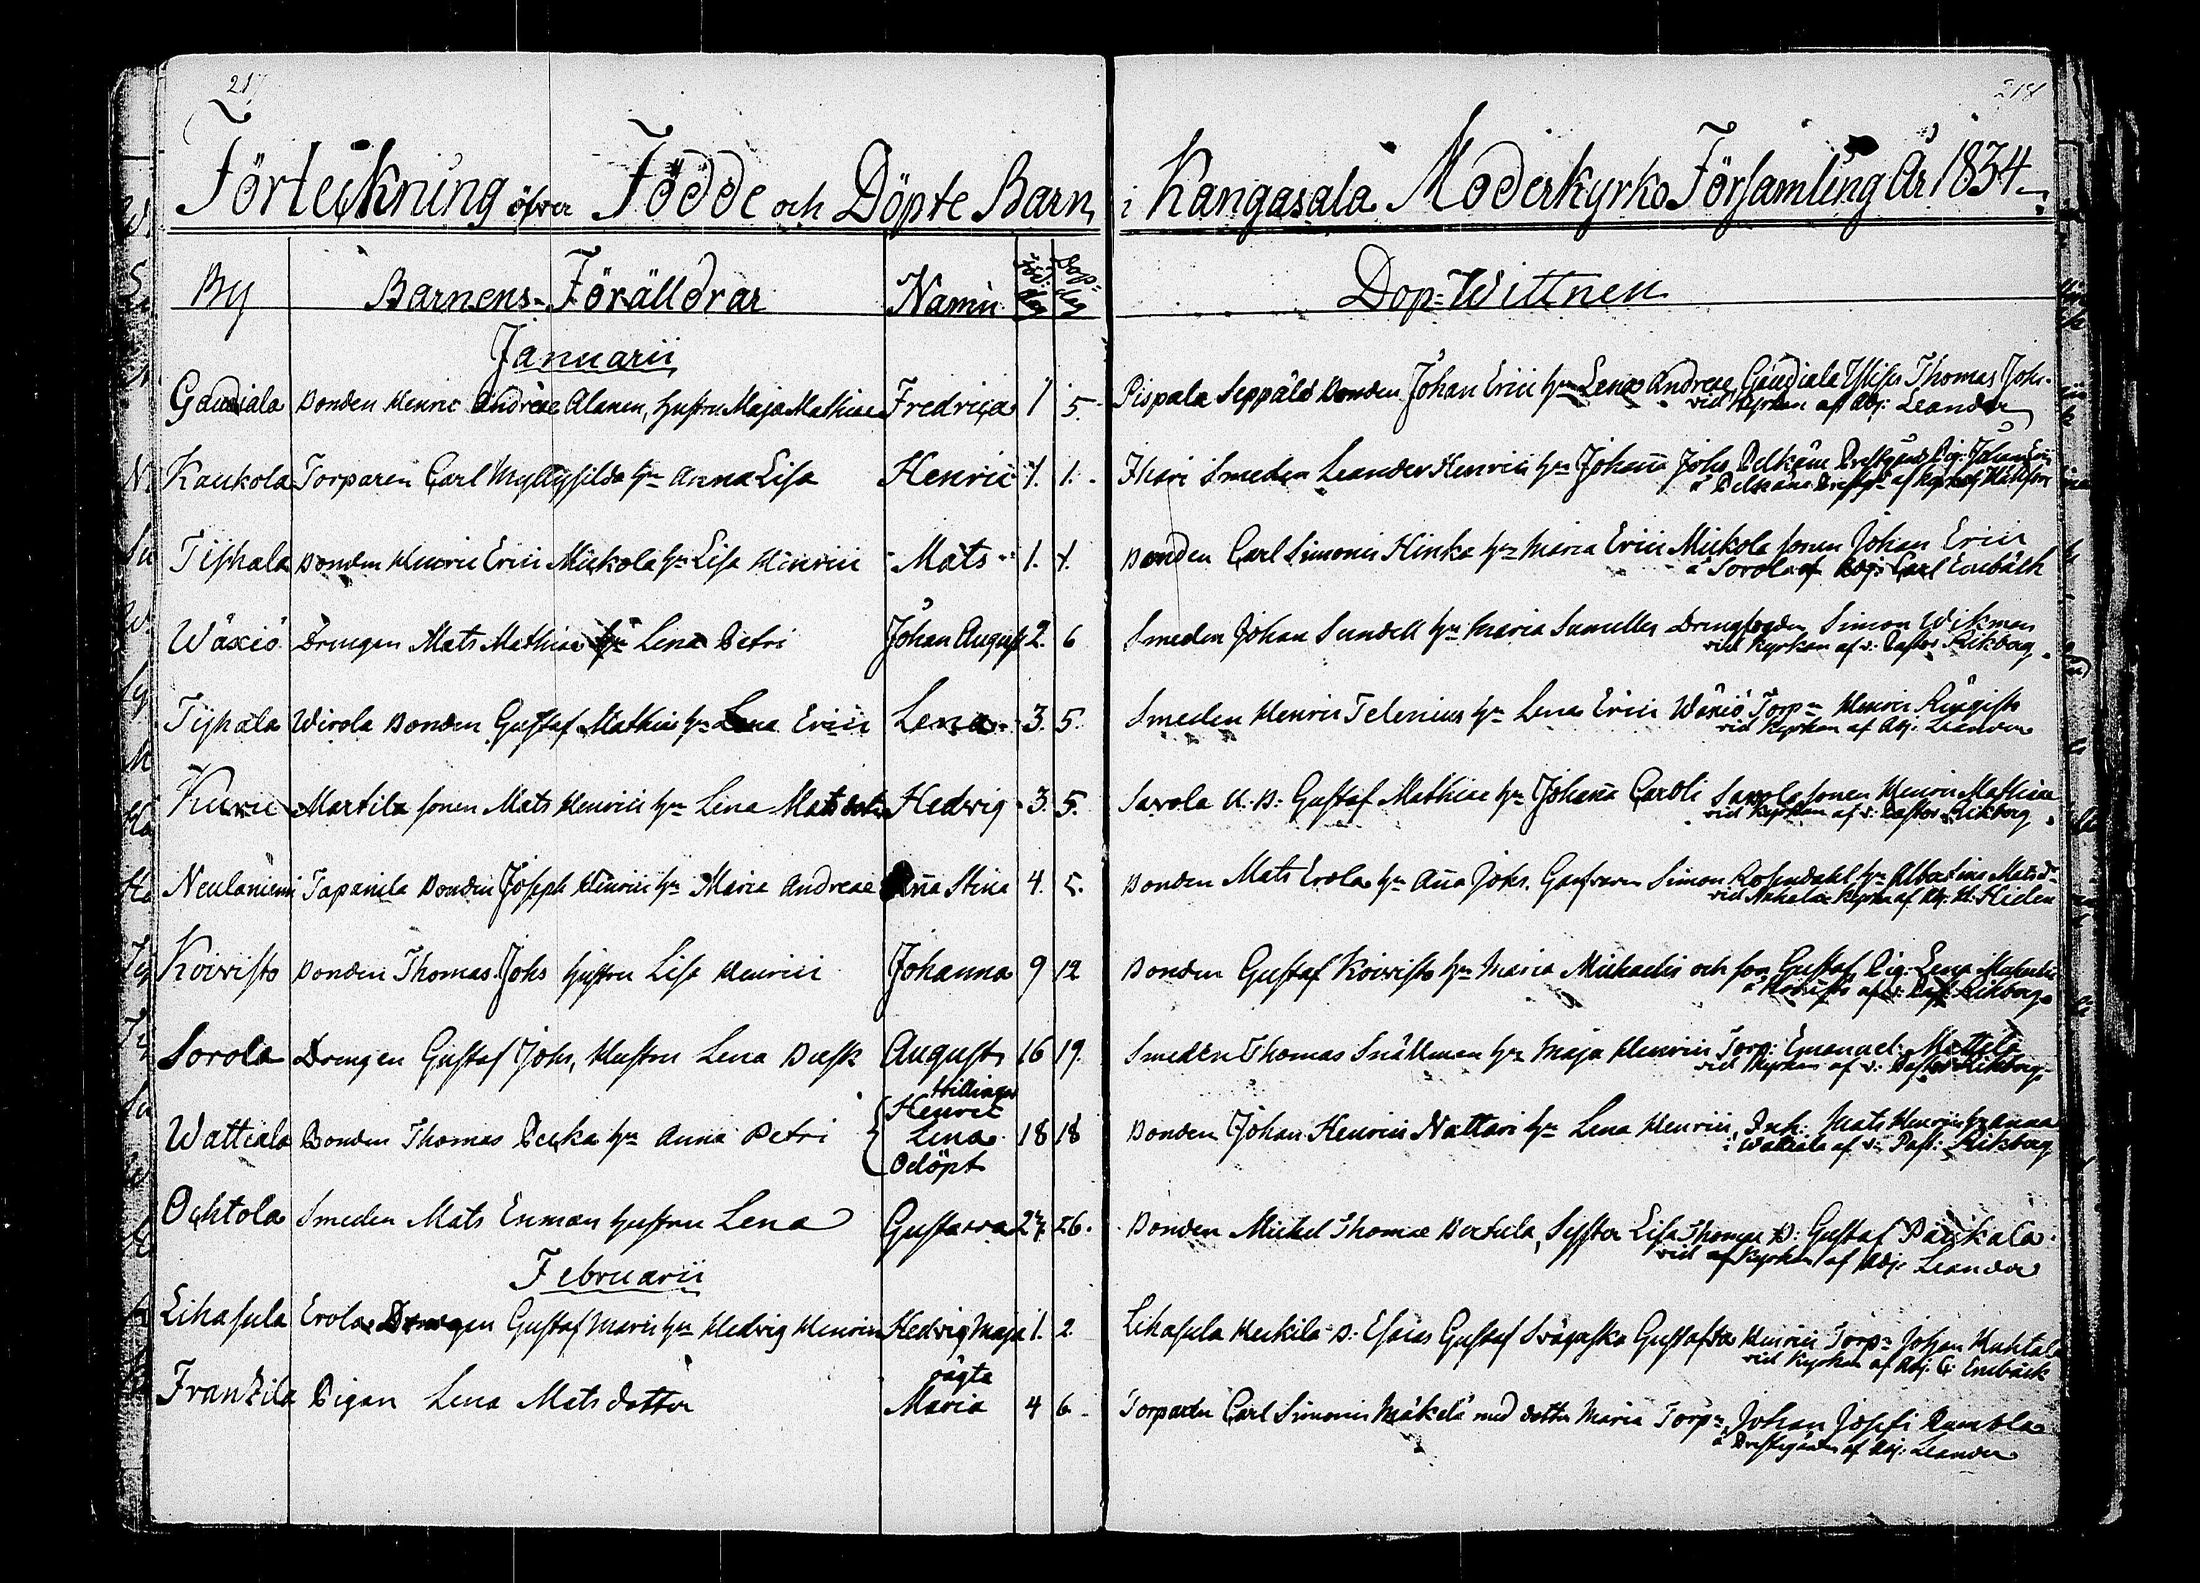 217
218
Förteckning öfver Födde och Döpte Barn, i Kangasala Moderkyrko Församling År 1834
By Barnens Förälldrar Namn Föd: dag Dop: dag Dop-Wittnen
Januarii
Gaudiala Bonden Henric Andreae Alanen, hustru Maja Mathiae Fredrica 1 5. Pispala Seppälä Bonden Johan Erici hn Lena Andreae, Gaudiala Thomas Johs.
vid Kyrkan af Adj: Leander
Kaukola Torparen Carl hn Anna Lisa Henric 1. 1. Smeden Leander Henrici hn Johanna Johs
Tiihala Bonden Henric Erici Mickola hn Lisa Henrici Mats 1. 1. Bonden Carl Simonis Hinka hn Maria Erici Mickola sonen Johan Erici
i Sorola af Adj: Carl Enebäck
Wäxiö Drengen Mats Mathiae hn Lena Petri Johan August 2. 6 Smeden Johan Sundell hn Maria Samuelis Drengfogden Simon Wikman
vid Kyrkan af v: Pastor Rikberg.
Tiihala Wirola Bonden Gustaf Mathiae hn Lena Erici Lena 3. 5. Smeden Henric Telenius hn Lena Erici Wäxiö Torpn Henric
vid Kyrkan af Adj: Leander
Kuru Martila sonen Mats Henrici hn Lena Matsdotter Hedvig 3. 5. Savola U. B: Gustaf Mathiae hn Johanna Caroli Savola sonen Henric Mathiae
vid Kyrkan af v: Pastor Rikberg.
Neulaniemi Tapanila Bonden Joseph Henrici hn Maria Andreae Anna Stina 4. 5. Bonden Mats Erola hn Anna Johs. Garfvaren Simon Rosendahl hn Albertina Matsd.
vid Kyrka af Adj: H. Hiden
Koivisto Bonden Thomas Johs hustru Lisa Henrici Johanna 9 12 Bonden Gustaf Koivisto hn Maria Michaelis och son Gustaf, Pig: Lena Michaelis
i Koivisto af v: Past: Rikberg.
Sorola Drengen Gustaf Johs, Hustru Lena Bask August 16 19. Smeden Thomas Snällman hn Maja Henrici Torp: Emanuel Mattila
vid Kyrkan af v: Pastor Rikberg.
Wattiala Bonden Thomas Peuka hn Anna Petri tvillingar
Henric
Lena 18 18 Bonden Johan Henrici Nattari hn Lena Henrici, Inh: Mats Henrici hn Anna
Odöpt i Wattiala af v: Past: Rikberg
Ochtola Smeden Mats Enman hustru Lena Gustava 24. 26. Bonden Michel Thomae Bertula, Syster Lisa Thomae B: Gustaf Päckala.
vid Kyrkan af Adj: Leander
Februarii
Lihasula Erola Drengen Gustaf hn Hedvig Henrici Hedvig Maja 1. 2. Lihasula Heikila B: Esaias Gustaf Svägerska Gustafva Henrici Torpn Johan Huhtala
vid Kyrkan af Adj: C: Enebäck
Franzila Pigan Lena Matsdotter oägta
Maria 4 6. Torparen Carl Simonis Mäkelä med dotter Maria Torpn Johan Josefi
i Prestgården af Adj: Leander